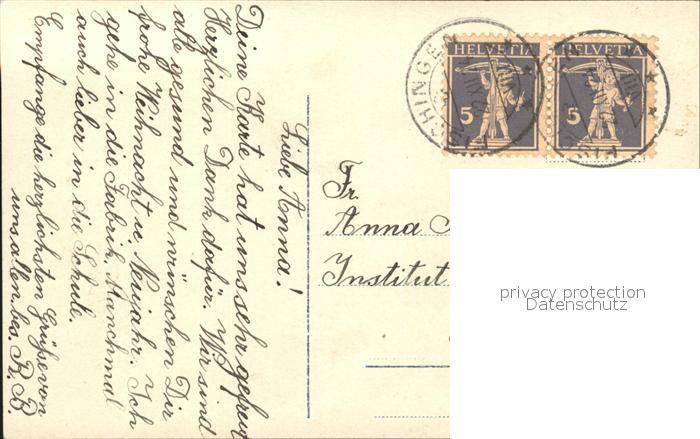 Liebe Anna!
Deine Karte hat uns sehr gefreut
Herzlichen Dank dafür. Wir sind
alle gesund und wünschen Dir
frohe Weihnacht u. Neujahr. Ich
gehe in die Fabrik. Manchmal
auch lieber in die Schule.
Empfange die herzlichsten Grüße von
uns allen bes. R. B.
HELVETIA
5
HELVETIA
5
Fr.
Anna
Institut
privacy protection
Datenschutz